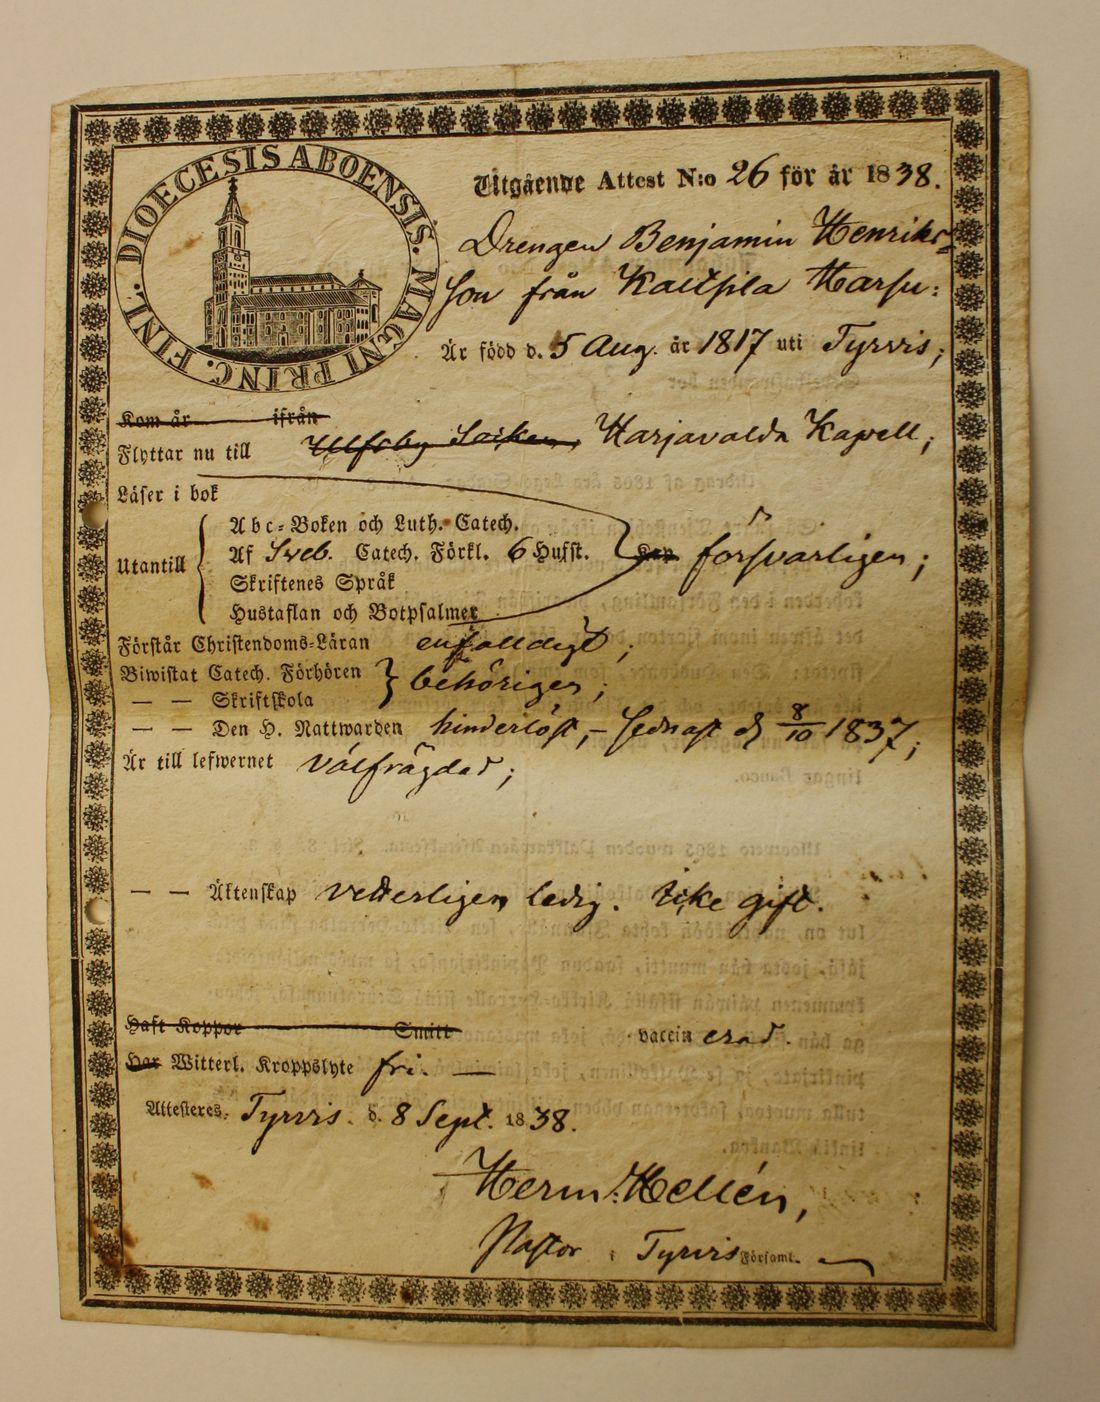 DIOECESIS ABOENSIS. MAGNI PRINC. FINL.
Utgående Attest N:o 26 för år 1838.
Drengen Benjamin Henriks-
son från Kaltsila Harsu:
Är född d. 5 Aug. år 1817 uti Tyrvis;
Kom år ifrån
Flyttar nu till Ulfsby Socken, Harjavalda Kapell;
Läser i bok
Utantill
Abc-Boken och Luth. Catech.
Af Sveb. Catech. Förkl. 6 Hufst. försvarligen;
Skriftenes Språk
Hustaflan och Botpsalmer
Förstår Christendoms-Läran enfalldigt;
Biwistat Catech. Förhören } behörigen;
— — Skriftskola
— — Den H. Nattwarden hinderlöst, – sednast d. 8/10 1837;
Är till lefwernet välfrägdad;
— — Äktenskap vetterligen ledig. Icke gift.
Haft Koppor Smitt vaccin erad.
Har Witterl. Kroppslyte fri. —
Attesteres, Tyrvis. d. 8 Sept. 1838.
Herm: Hellén,
Pastor i Tyrvis Församl.